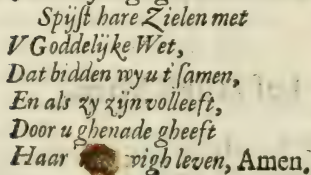 Spijſt hare Zielen met
V Goddelijke Wet,
Dat bidden wy u t'ſamen,
En als zy zijn volleeft,
Door u ghenade gheeft
Haar wigh leven, Amen.